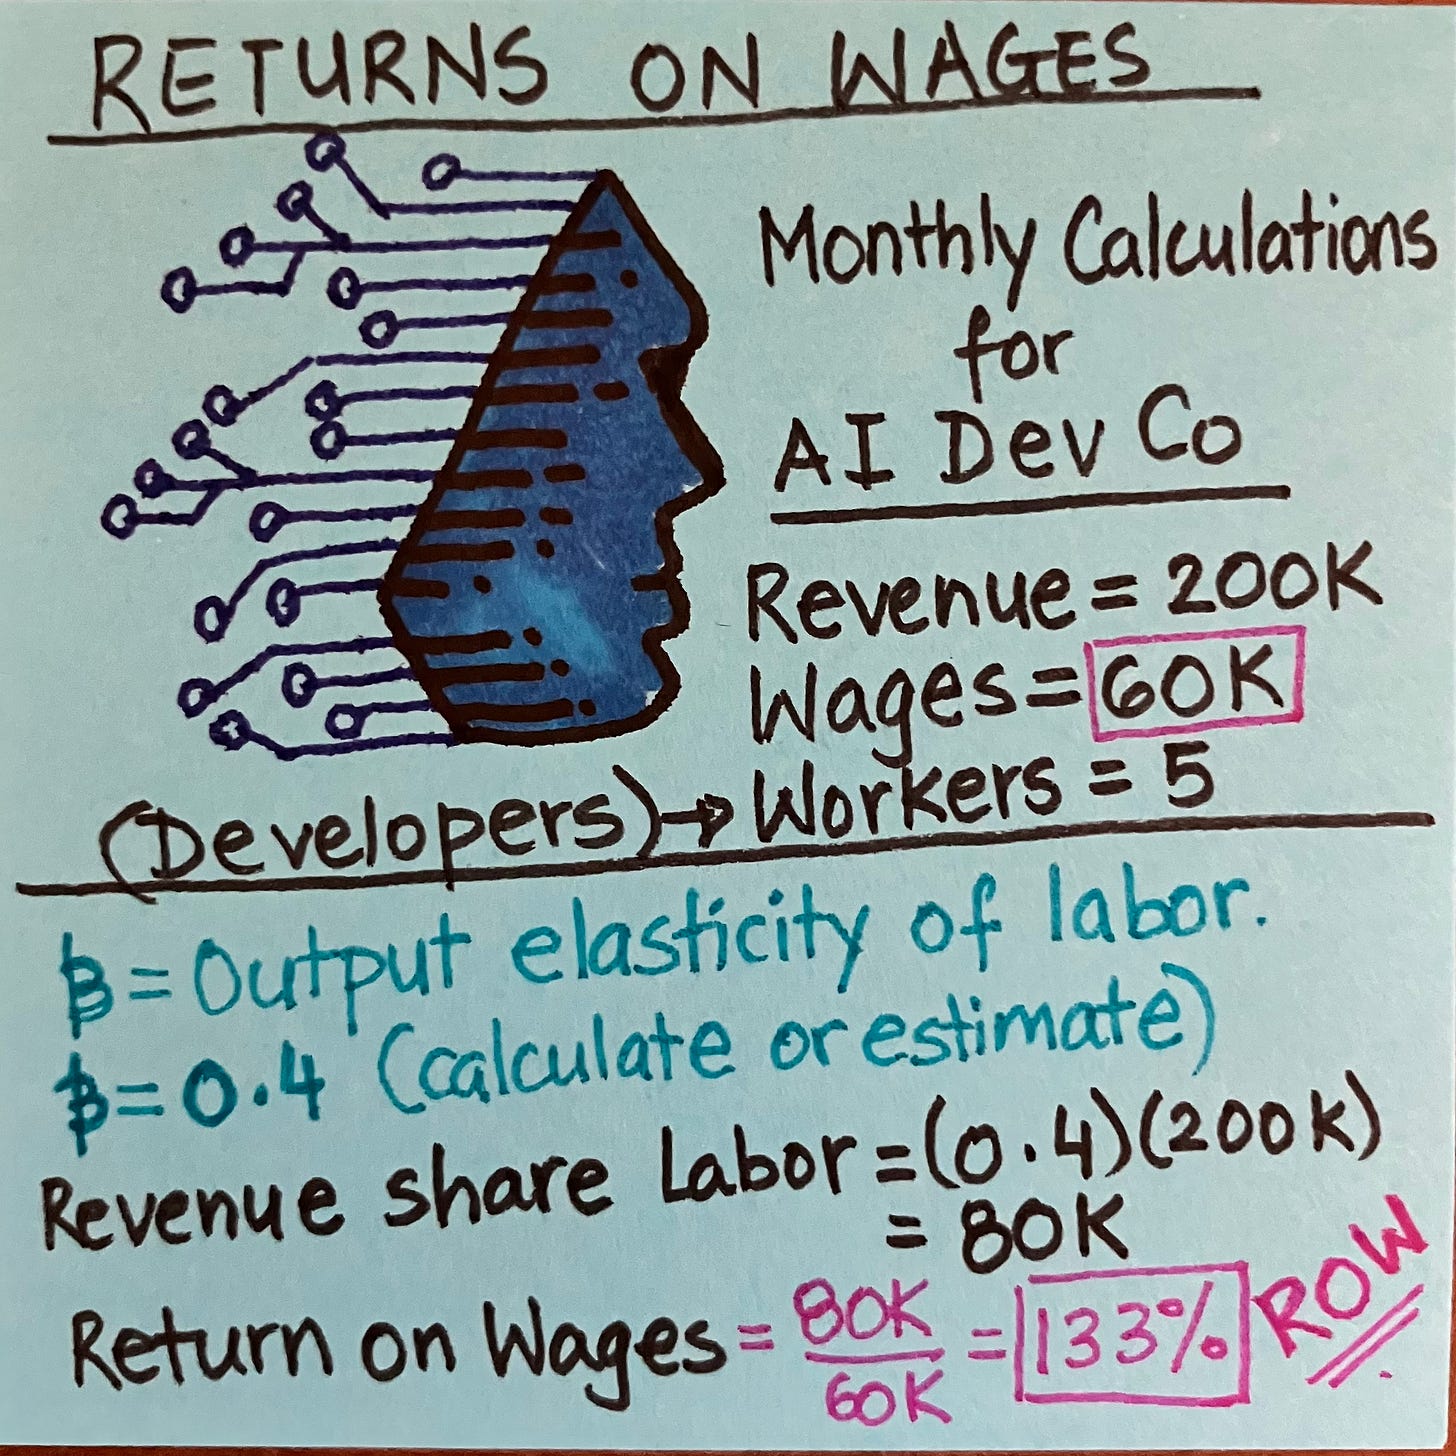 RETURNS ON WAGES
Monthly Calculations
for
AI Dev Co
Revenue = 200K
Wages = 60K
(Developers) → Workers = 5
β = Output elasticity of labor.
β = 0.4 (calculate or estimate)
Revenue share Labor = (0.4)(200K)
= 80K
Return on Wages = 80K/60K = 133% ROW